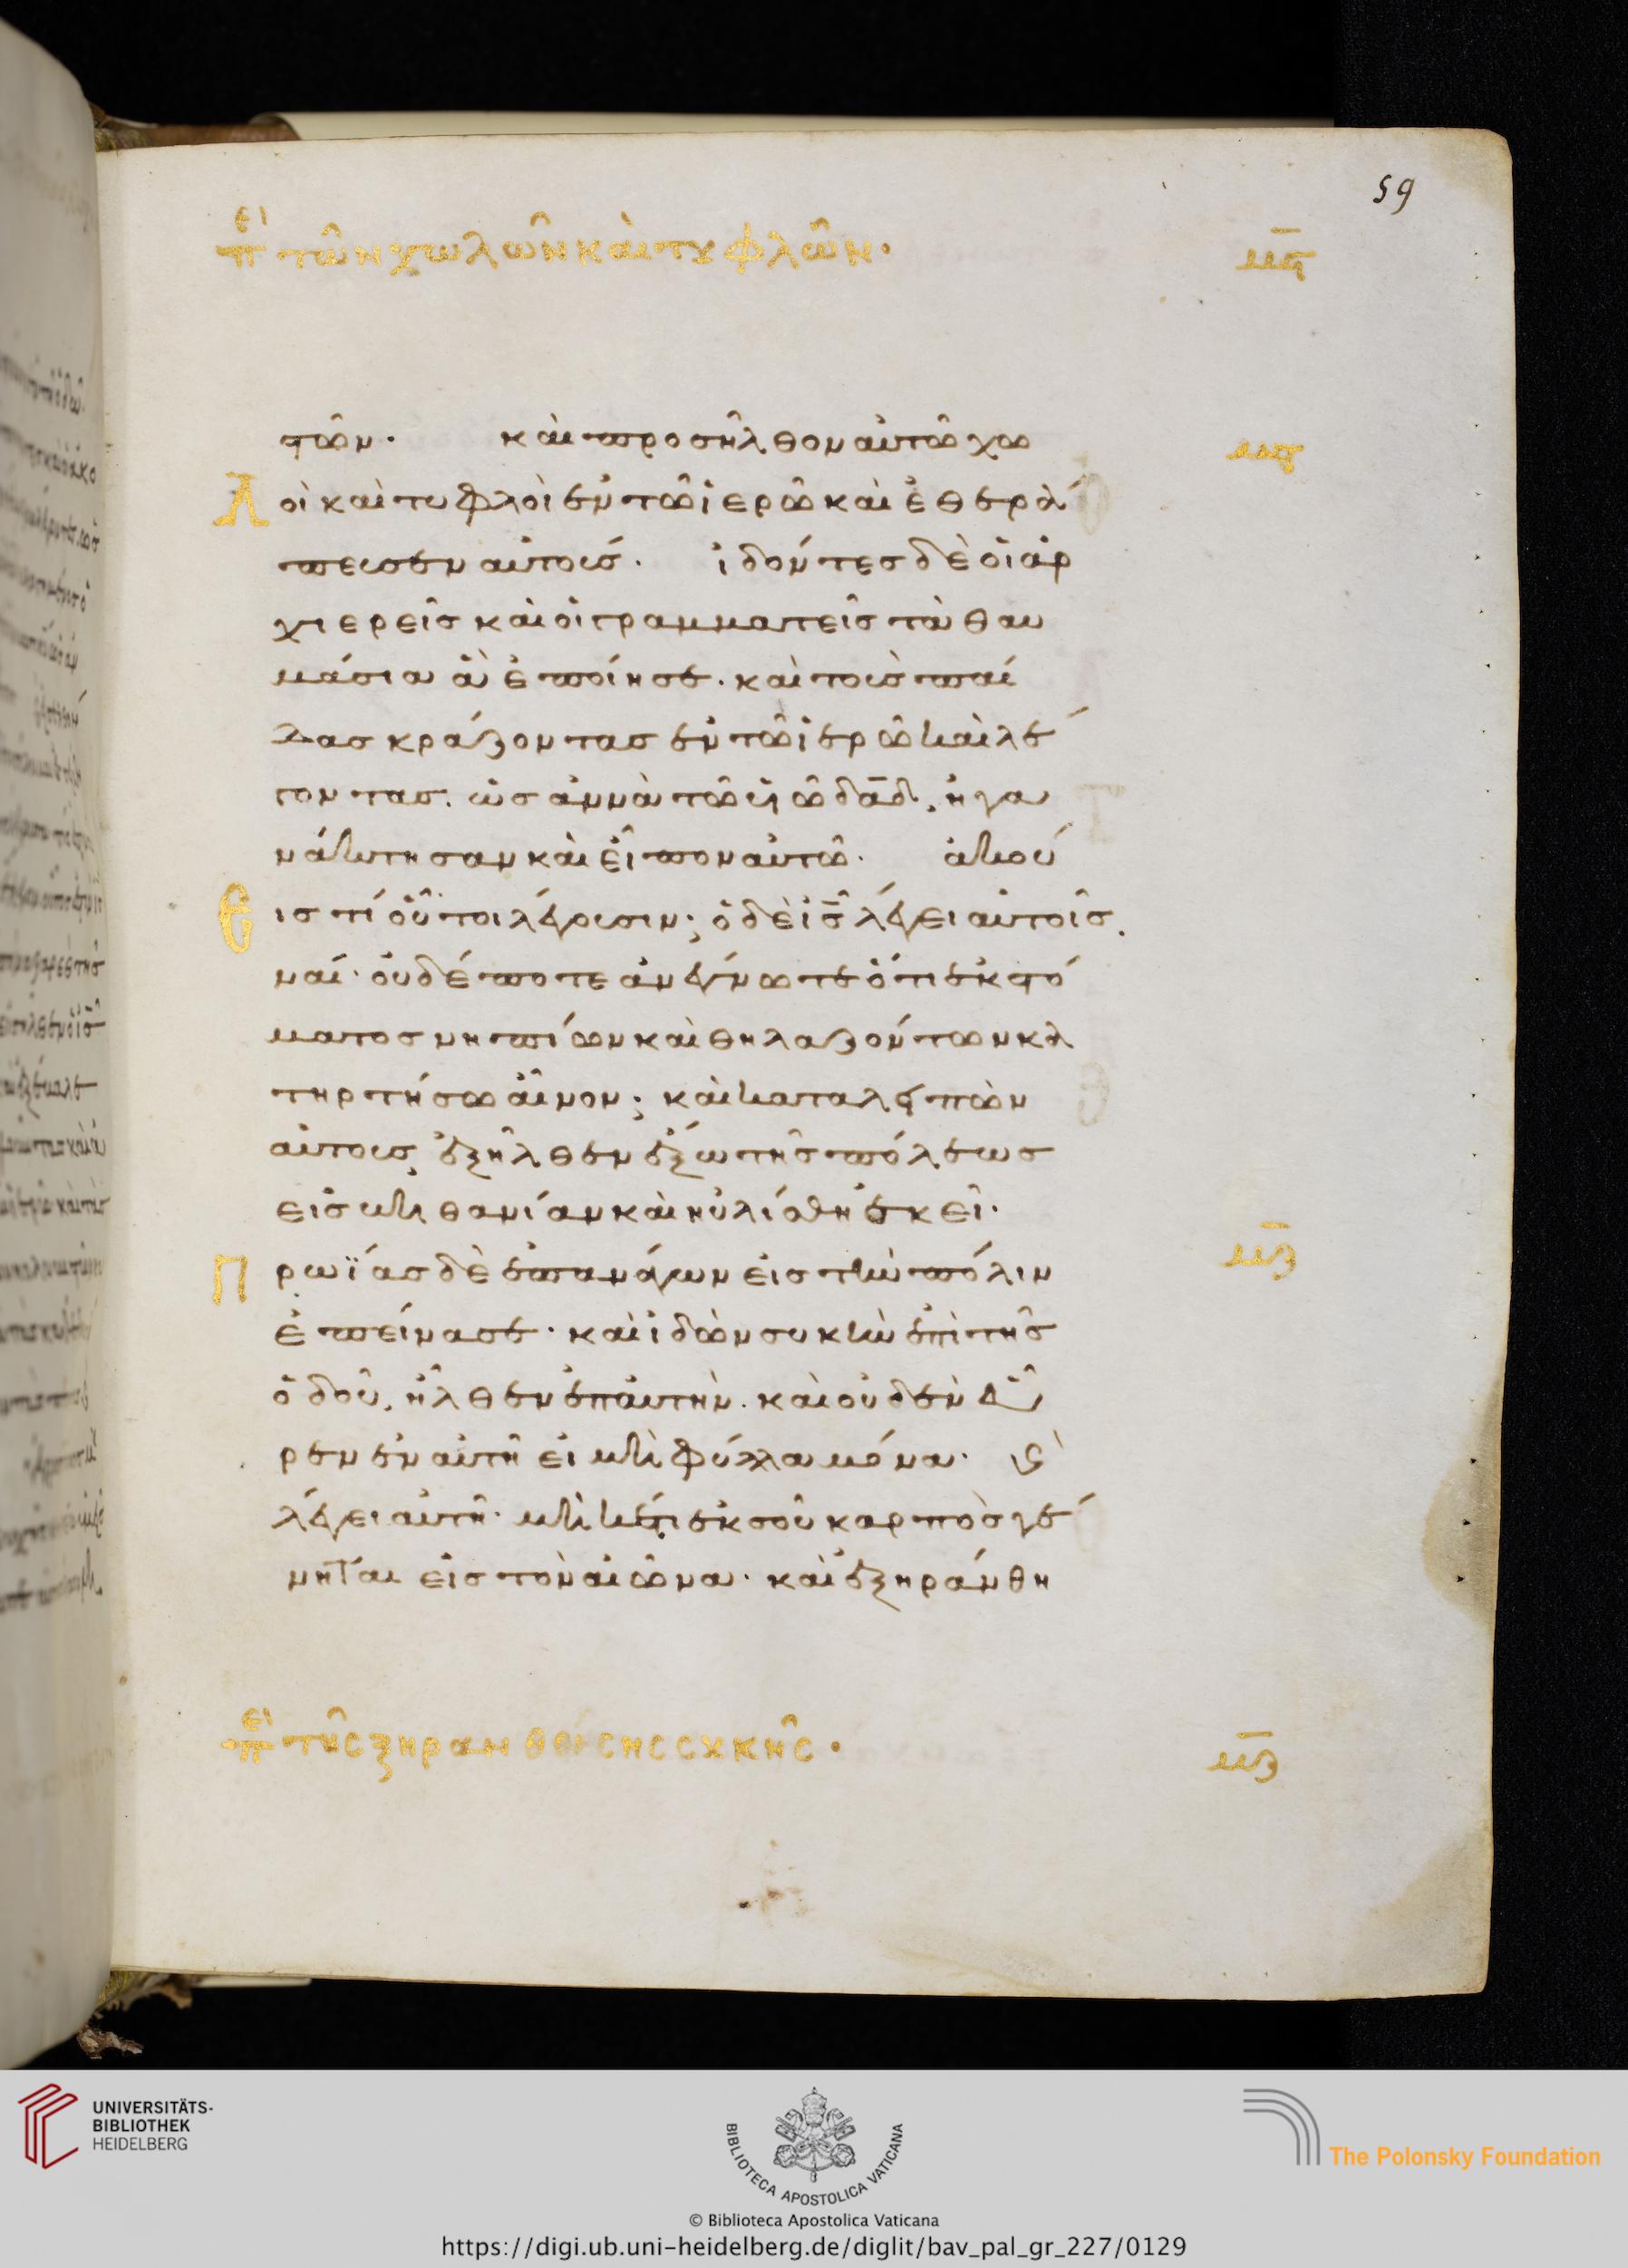 59
πεὶ τῶν χωλῶν καὶ τυφλῶν· μϛ
στῶν· καὶ προσῆλθον αὐτῶ χω μϛ
λοὶ καὶ τυφλοὶ ἐν τῶ ἱερῶ καὶ ἐθερά
πευσεν αὐτούς· ἰδόντες δὲ οἱ ἀρ
χιερεῖς καὶ οἱ γραμματεῖς τὰ θαυ
μάσια ἃ ἐποίησε· καὶ τοὺς παί
δας κράζοντας ἐν τῶ ἱερῶ καὶ λέ
γοντας. ὡς ἀννὰ τῶ υἱῶ δαδ, ἠγα
νάκτησαν καὶ εἶπον αὐτῶ· ἀκού
εις τί οὗτοι λέγουσιν; ὁ δὲ ις λέγει αὐτοῖς,
ναί· οὐδέποτε ἀνέγνωτε ὅτι ἐκ στό
ματος νηπίων καὶ θηλαζόντων κα
τηρτήσω αἶνον; καὶ καταλιπὼν
αὐτους, ἐξῆλθεν ἔξω τῆς πόλεως
εἰς βηθανίαν καὶ ηὐλίσθη ἐκεῖ·
Πρωΐας δὲ ἐπανάγων εἰς τὴν πόλιν μζ
ἐπείνασε· καὶ ἰδὼν συκὴν ἐπὶ τῆς
ὁδοῦ, ἦλθεν ἐπ αὐτήν. καὶ οὐδὲν εὗ
ρεν ἐν αὐτῆ εἰ μὴ φύλλα μόνα· ϗ
λέγει αὐτῆ· μὴ κέτι ἐκ σοῦ καρπὸς γέ
νηται εἰς τὸν αἰῶνα· καὶ ἐξηράνθη
πεὶ τῆς ξηρανθείσης συκῆς· μζ
UNIVERSITÄTS-
BIBLIOTHEK
HEIDELBERG
BIBLIOTECA APOSTOLICA VATICANA
The Polonsky Foundation
© Biblioteca Apostolica Vaticana
https://digi.ub.uni-heidelberg.de/diglit/bav_pal_gr_227/0129